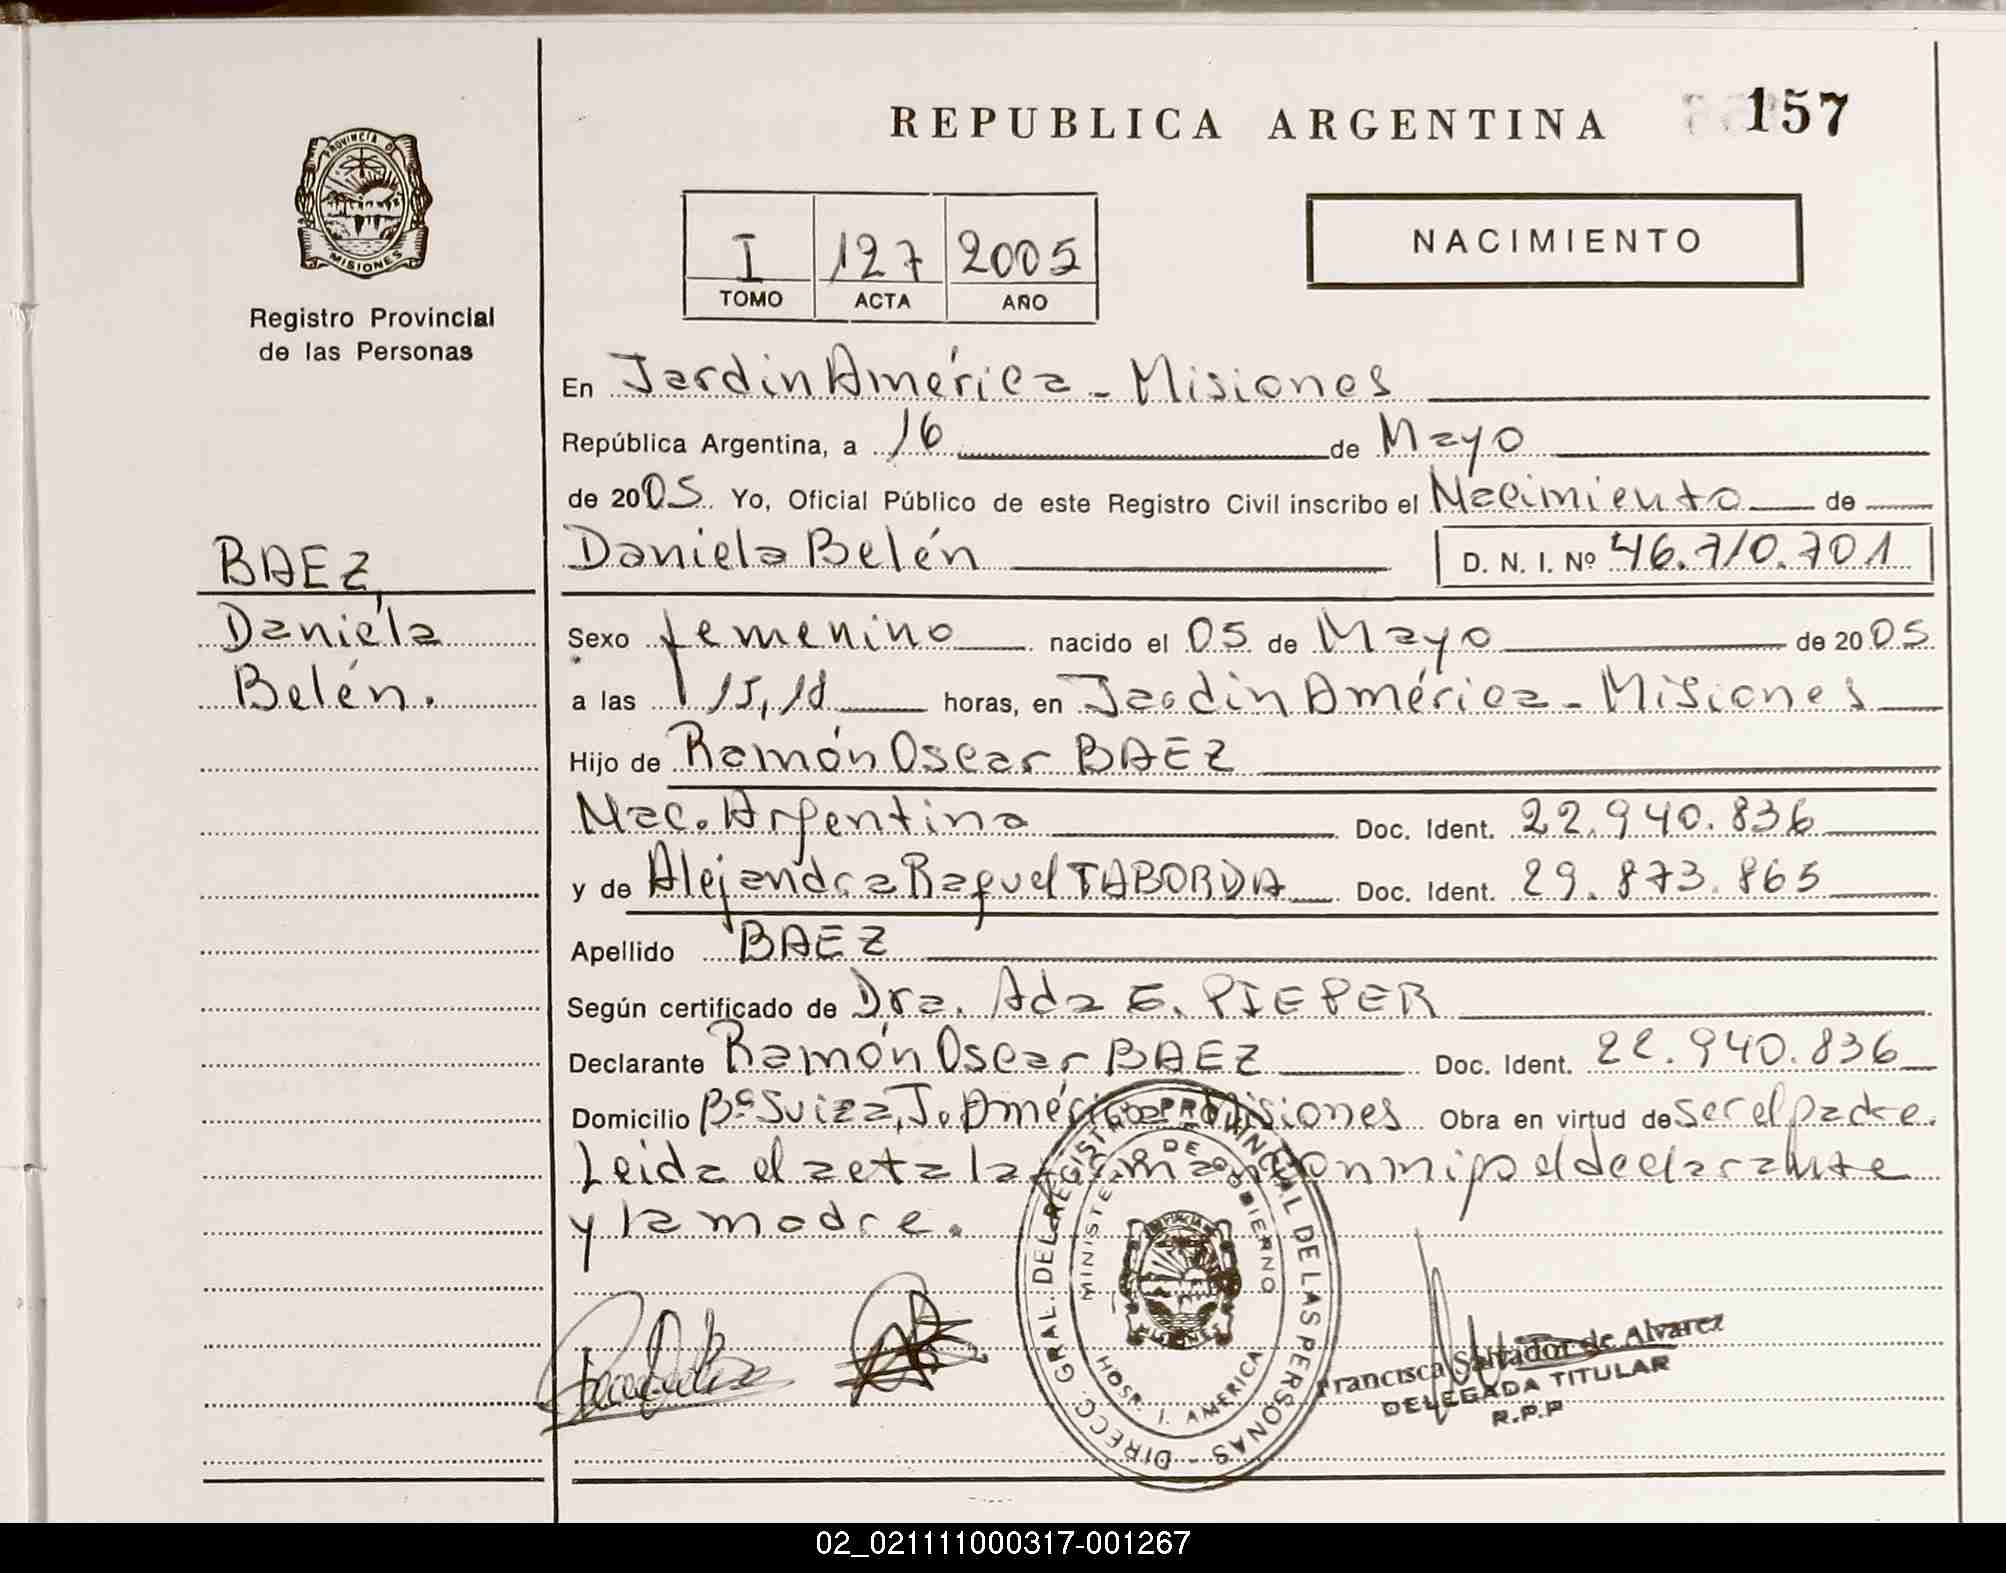 REPUBLICA ARGENTINA
157
PROVINCIA D
MISIONES
Registro Provincial
de las Personas
I 127 2005
TOMO ACTA AÑO
NACIMIENTO
En Jardin América - Misiones
República Argentina, a 16 de Mayo
de 2005. Yo, Oficial Público de este Registro Civil inscribo el Nacimiento de
Daniela Belén D. N. I. Nº 46.710.701
BAEZ,
Daniela
Belén.
Sexo femenino nacido el 05 de Mayo de 2005.
a las 15,18 horas, en Jardin América - Misiones
Hijo de Ramón Oscar BAEZ
Nac. Argentina Doc. Ident. 22.940.836
y de Alejandra Raquel TABORDA Doc. Ident. 29.873.865
Apellido BAEZ
Según certificado de Dra. Ada E. PIEPER
Declarante Ramón Oscar BAEZ Doc. Ident. 22.940.836
Domicilio Bº Suiza, J. América Misiones Obra en virtud de ser el padre.
Leida el acta la firman conmigo el declarante
y la madre.
DIRECC. GRAL. DEL REGISTRO PROVINCIAL DE LAS PERSONAS -
MINISTERIO DE GOBIERNO
MISIONES
HOSP. J. AMERICA
Francisca Salvador de Alvarez
DELEGADA TITULAR
R.P.P
02_021111000317-001267